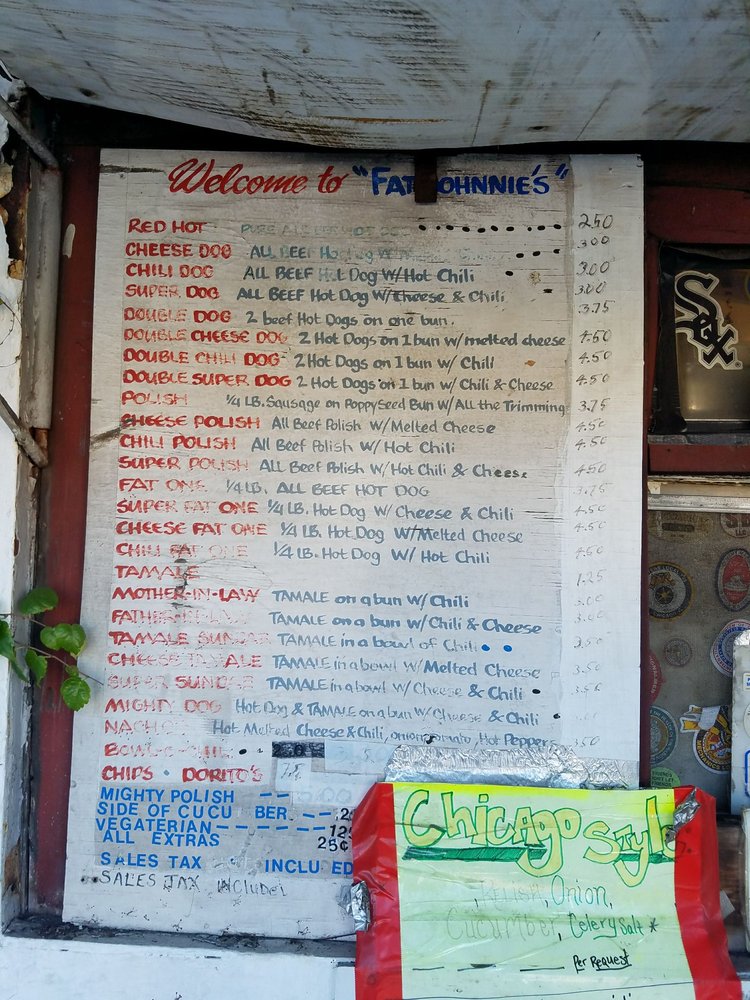 Welcome to "FAT JOHNNIE'S"
RED HOT 2.50
CHEESE DOG ALL BEEF 3.00
CHILI DOG ALL BEEF Hot Dog W/Hot Chili 3.00
SUPER DOG ALL BEEF Hot Dog W/Cheese & Chili 3.00
DOUBLE DOG 2 beef Hot Dogs on one bun. 3.75
DOUBLE CHEESE DOG 2 Hot Dogs on 1 bun w/ melted cheese 4.50
DOUBLE CHILI DOG 2 Hot Dogs on 1 bun w/ Chili 4.50
DOUBLE SUPER DOG 2 Hot Dogs on 1 bun w/ Chili & Cheese 4.50
POLISH 1/4 LB. Sausage on PoppySeed Bun w/ All the Trimming 3.75
CHEESE POLISH All Beef Polish w/ Melted Cheese 4.50
CHILI POLISH All Beef Polish w/ Hot Chili 4.50
SUPER POLISH All Beef Polish w/ Hot Chili & Cheese 4.50
FAT ONE 1/4 LB. ALL BEEF HOT DOG 3.75
SUPER FAT ONE 1/4 LB. Hot Dog w/ Cheese & Chili 4.50
CHEESE FAT ONE 1/4 LB. Hot Dog W/Melted Cheese 4.50
CHILI FAT ONE 1/4 LB. Hot Dog W/ Hot Chili 4.50
TAMALE 1.25
MOTHER-IN-LAW TAMALE on a bun w/ Chili 3.00
FATHER-IN-LAW TAMALE on a bun w/ Chili & Cheese 3.00
TAMALE SUNDAE TAMALE in a bowl of Chili 3.50
CHEESE TAMALE TAMALE in a bowl w/ Melted Cheese 3.50
SUPER SUNDAE TAMALE in a bowl w/ Cheese & Chili 3.50
MIGHTY DOG Hot Dog & TAMALE on a bun w/ Cheese & Chili
NACHOS Hot Melted Cheese & Chili, onion, tomato, Hot Pepper 3.50
BOWL-O-CHILI
CHIPS • DORITO'S
MIGHTY POLISH
SIDE OF CUCUMBER
VEGATERIAN
ALL EXTRAS 25¢
SALES TAX INCLUDED
SALES TAX Included
Sox
Chicago Style
Relish, Onion,
Cucumber, Celery Salt *
Per Request